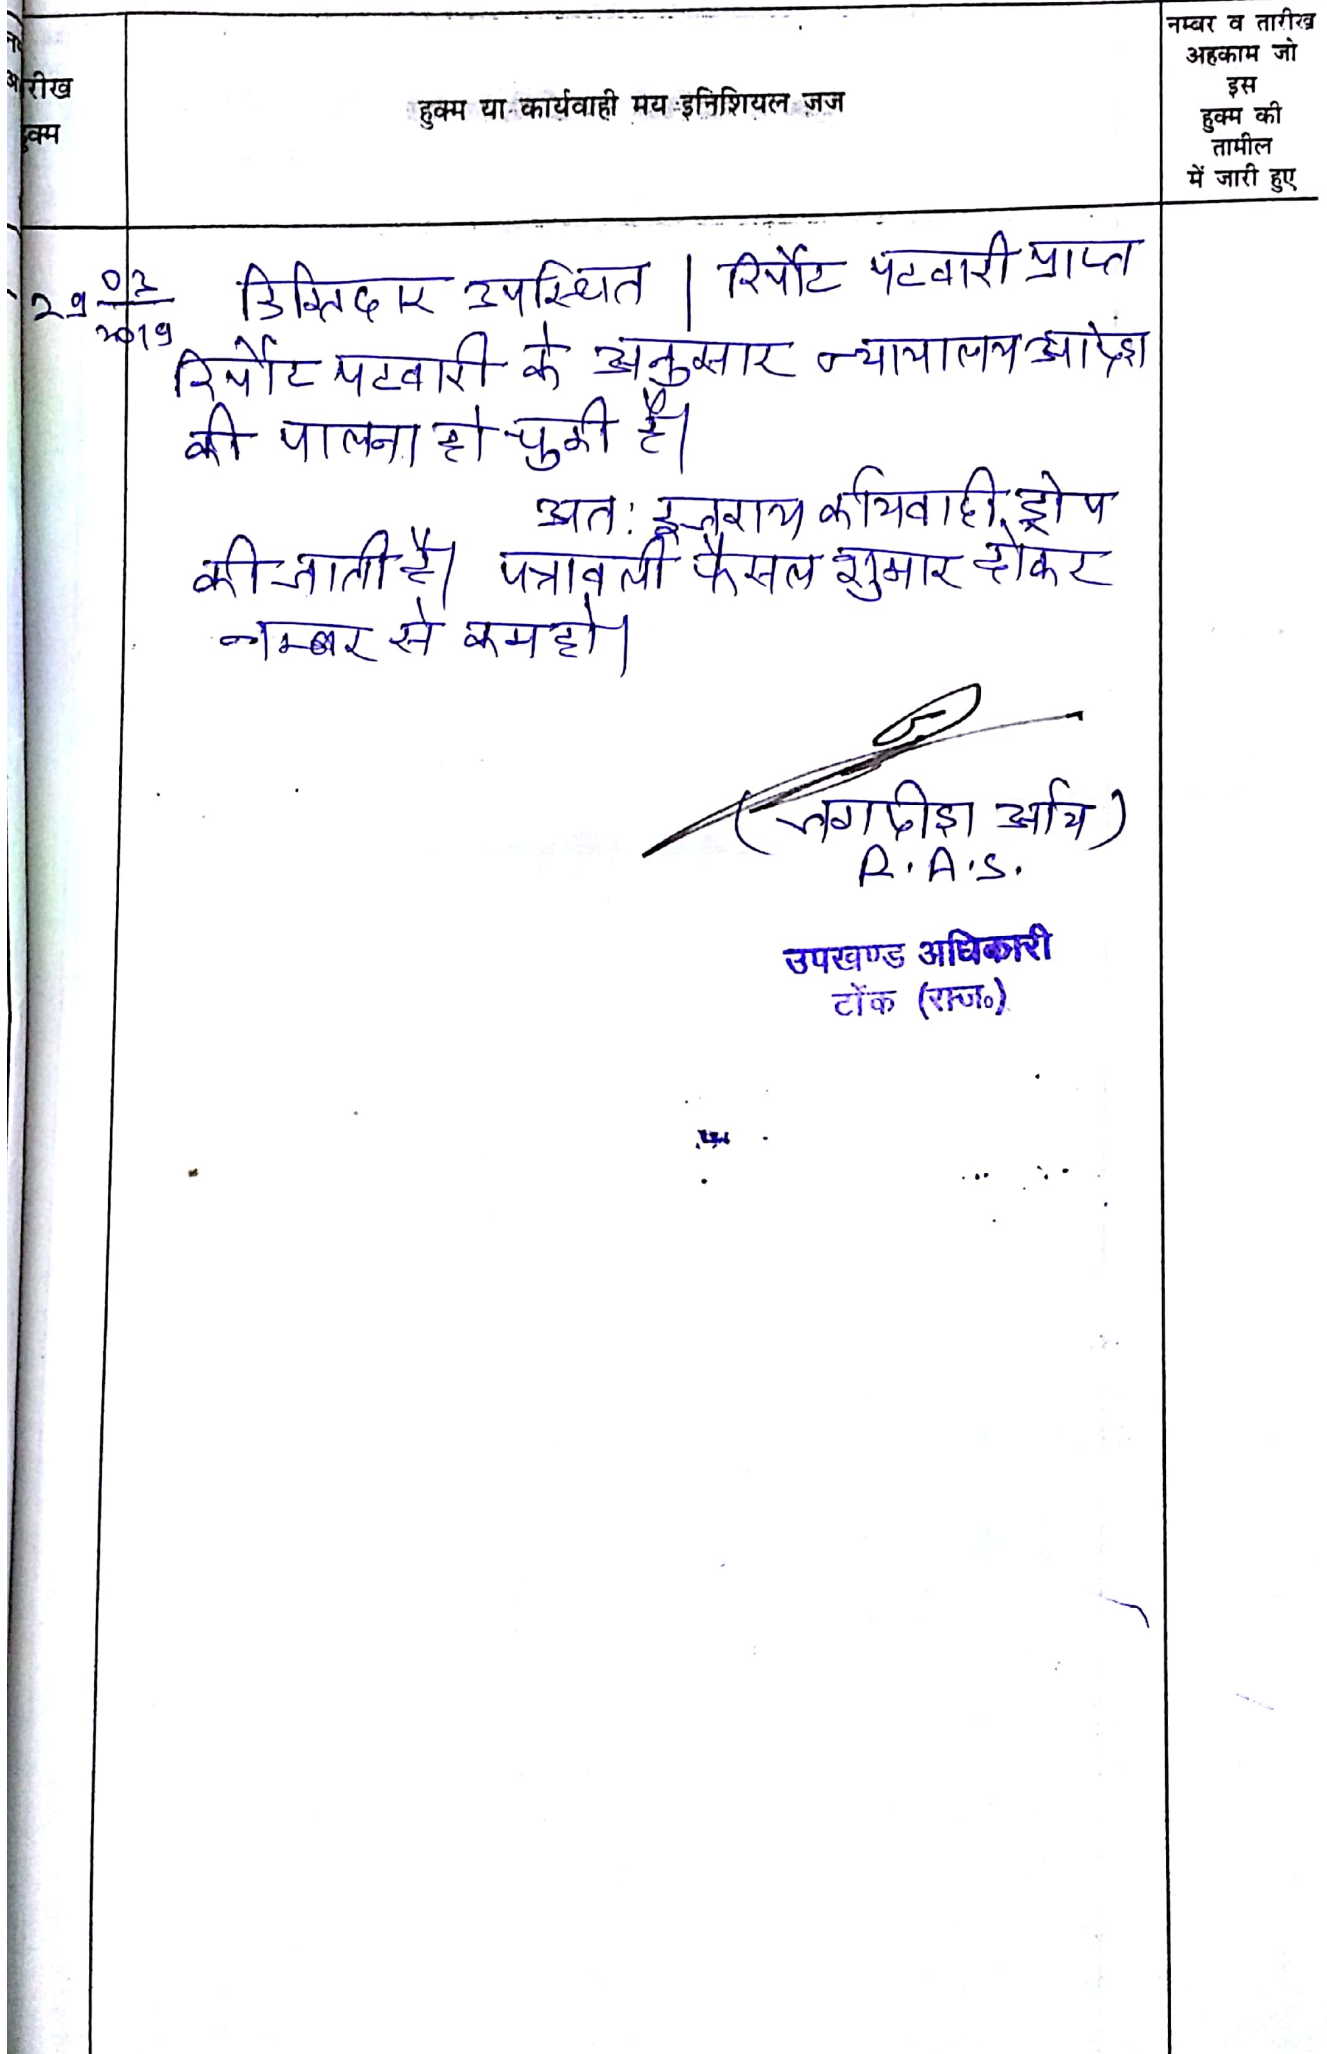 रीख
हुक्म
हुक्म या कार्यवाही मय इनिशियल जज
नम्बर व तारीख
अहकाम जो
इस
हुक्म की
तामील
में जारी हुए
29 03/2019 डिक्रिदार उपस्थित | रिर्पोट पटवारी प्राप्त
रिर्पोट पटवारी के अनुसार न्यायालय आदेश
की पालना हो चुकी है।
अत: इजराय कार्यवाही ड्रोप
की जाती है। पत्रावली फैसल शुमार होकर
नम्बर से कम हो।
(जगदीश आर्य)
R.A.S.
उपखण्ड अधिकारी
टोंक (राज०)